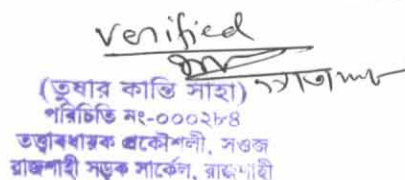 Verified
(তুষার কান্তি সাহা)
পরিচিতি নং-০০০২৮৪
তত্ত্বাবধায়ক প্রকৌশলী, সওজ
রাজশাহী সড়ক সার্কেল, রাজশাহী